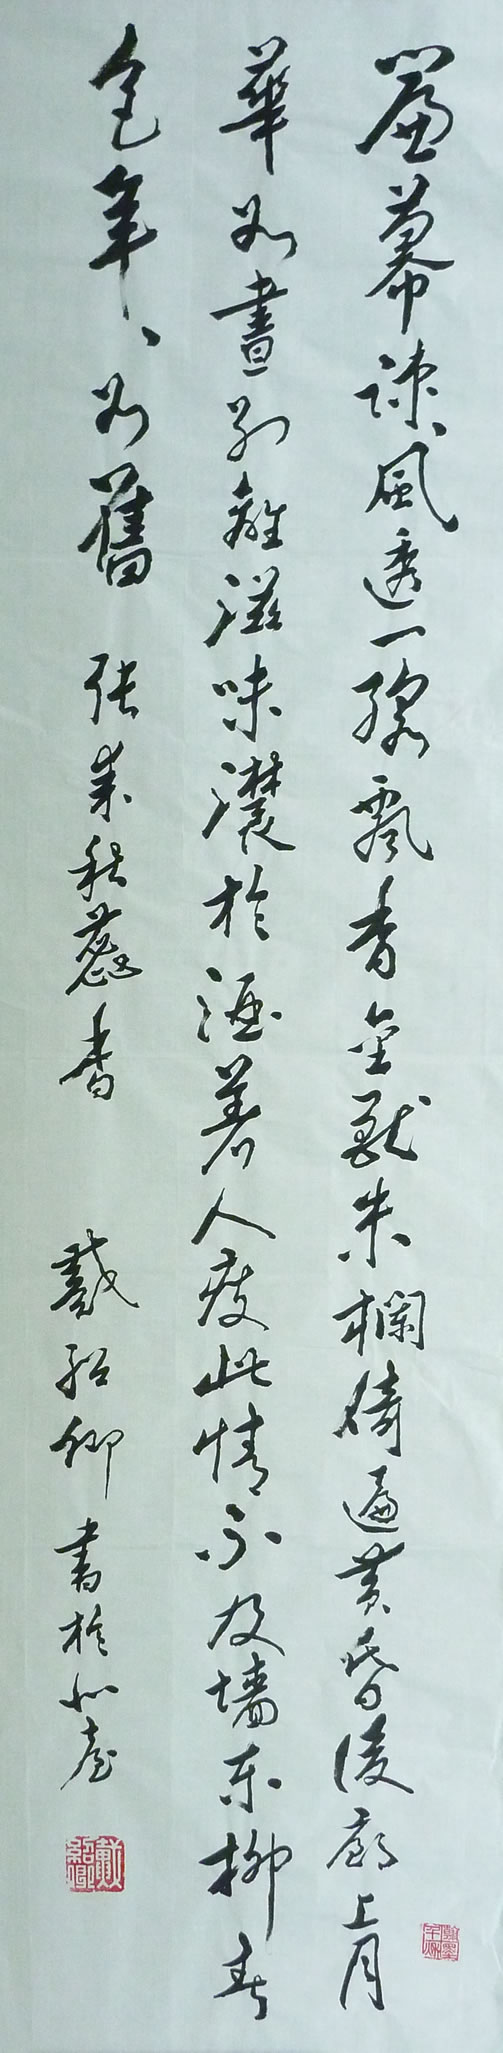 簾幕疎疎風透一線飄香金獸朱欄倚遍黃昏後廊上月
華如晝別離滋味濃於酒著人瘦此情不及墻東柳春
色年年如舊 張耒秋蕊香 戴紹卿書於北臺